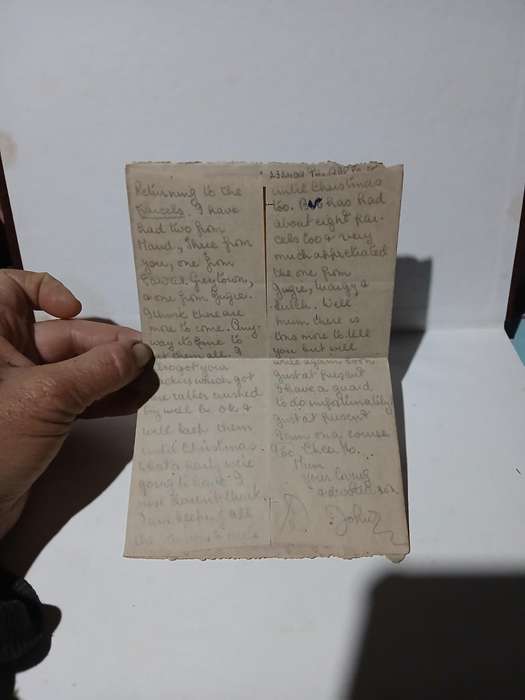 Returning to the
Parcels. I have
had two from
Maud, three from
you, one from
Greytown,
& one from Jugie.
I think there are
more to come. Any-
way to time to
them all. I
also got your
which got
rather crushed
by well be O.K &
will keep them
until Christmas.
what a party were
going to have. I
must
I am keeping all
the
until Christmas
too. Bob has had
about eight par-
cels too & very
much appreciated
the one from
Jugie, Wargy &
Well
mum there is
tons more to tell
you but will
write again soon
just at present
I have a guard
to do unfortunately
just at present
I am on a course
too. Cheerio.
Mum
your loving
son
John